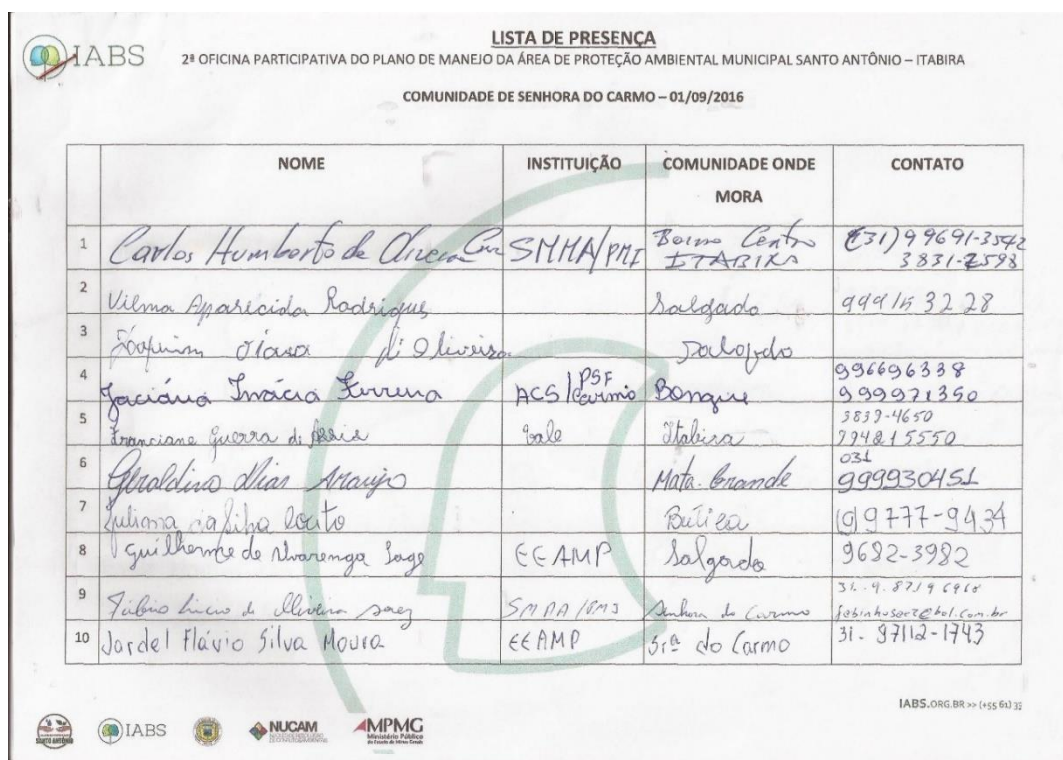 IABS
LISTA DE PRESENÇA
2ª OFICINA PARTICIPATIVA DO PLANO DE MANEJO DA ÁREA DE PROTEÇÃO AMBIENTAL MUNICIPAL SANTO ANTÔNIO – ITABIRA
COMUNIDADE DE SENHORA DO CARMO – 01/09/2016
NOME INSTITUIÇÃO COMUNIDADE ONDE MORA CONTATO
1 Carlos Humberto de SMMA/PMI Centro ITABIRA (31) 99691-3542
3831-2598
2 Vilma Aparecida Rodrigues Salgado
3 di Oliveira
4 Ferreira ACS/PSF Carmo 996696338
999971350
5 Franciane Guerra de Assis Vale Itabira 3839-4650
6 Geraldino Dias Araujo Mata Grande 031
999930451
7 Juliana Couto (9) 9777-9434
8 Guilherme de Alvarenga Lage EEAMP Salgado 9682-3982
9 Fábio Lucio de Oliveira Senhora do Carmo
10 Jardel Flávio Silva Moura EEAMP Srª do Carmo 31- 97112-1743
IABS.ORG.BR >> (+55 61)
SANTO ANTÔNIO IABS NUCAM MPMG
Ministério Público
do Estado de Minas Gerais